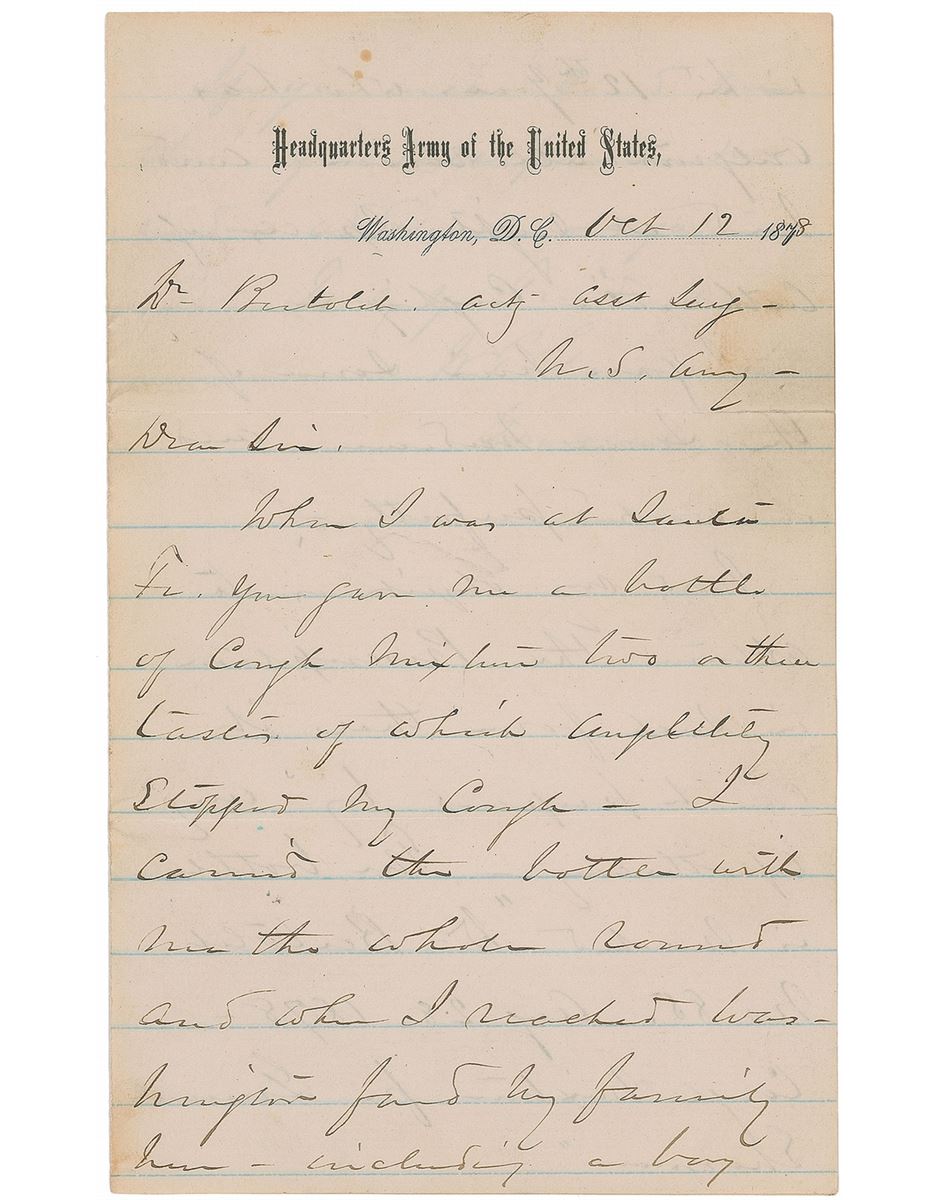 Headquarters Army of the United States,
Washington, D.C. Oct 12 1878
Dr. actg asst Surg -
U.S. Army -
Dear Sir.
When I was at Santa
Fe. You gave me a bottle
of Cough Mixture two or three
tastes of which
Stopped my Cough - I
carried the bottle with
me the whole round
and when I reached Was-
hington found my family
here - including a boy